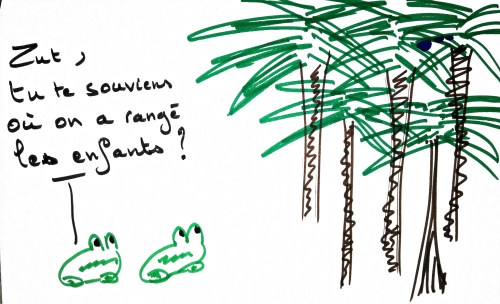 Zut,
tu te souviens
où on a rangé
les enfants ?